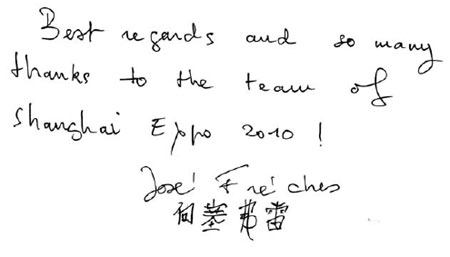 Best regards and so many
thanks to the team of
Shanghai Expo 2010 !
José Fréches
何塞弗雷